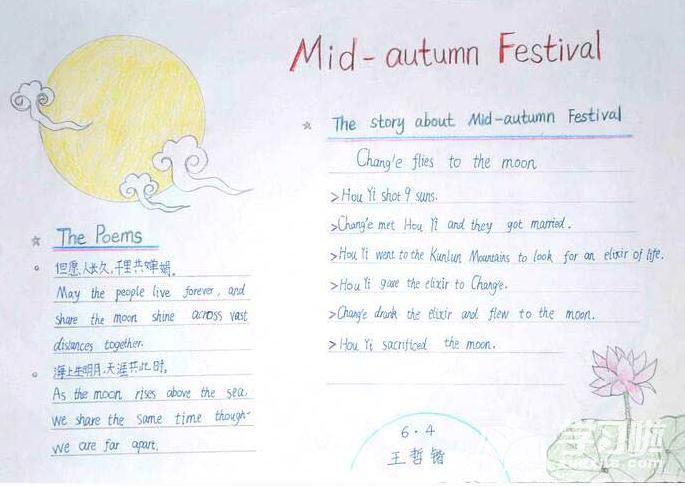 Mid-autumn Festival
☆ The story about Mid-autumn Festival
Chang'e flies to the moon
>Hou Yi shot 9 suns.
>Chang'e met Hou Yi and they got married.
>Hou Yi went to the Kunlun Mountains to look for an elixir of life.
>Hou Yi gave the elixir to Chang'e.
>Chang'e drank the elixir and flew to the moon.
>Hou Yi sacrificed the moon.
☆ The Poems
。但愿人长久,千里共婵娟。
May the people live forever, and
share the moon shine across vast
distances together.
。海上生明月,天涯共此时。
As the moon rises above the sea,
we share the same time though
we are far apart.
6·4
王哲锴
学习啦